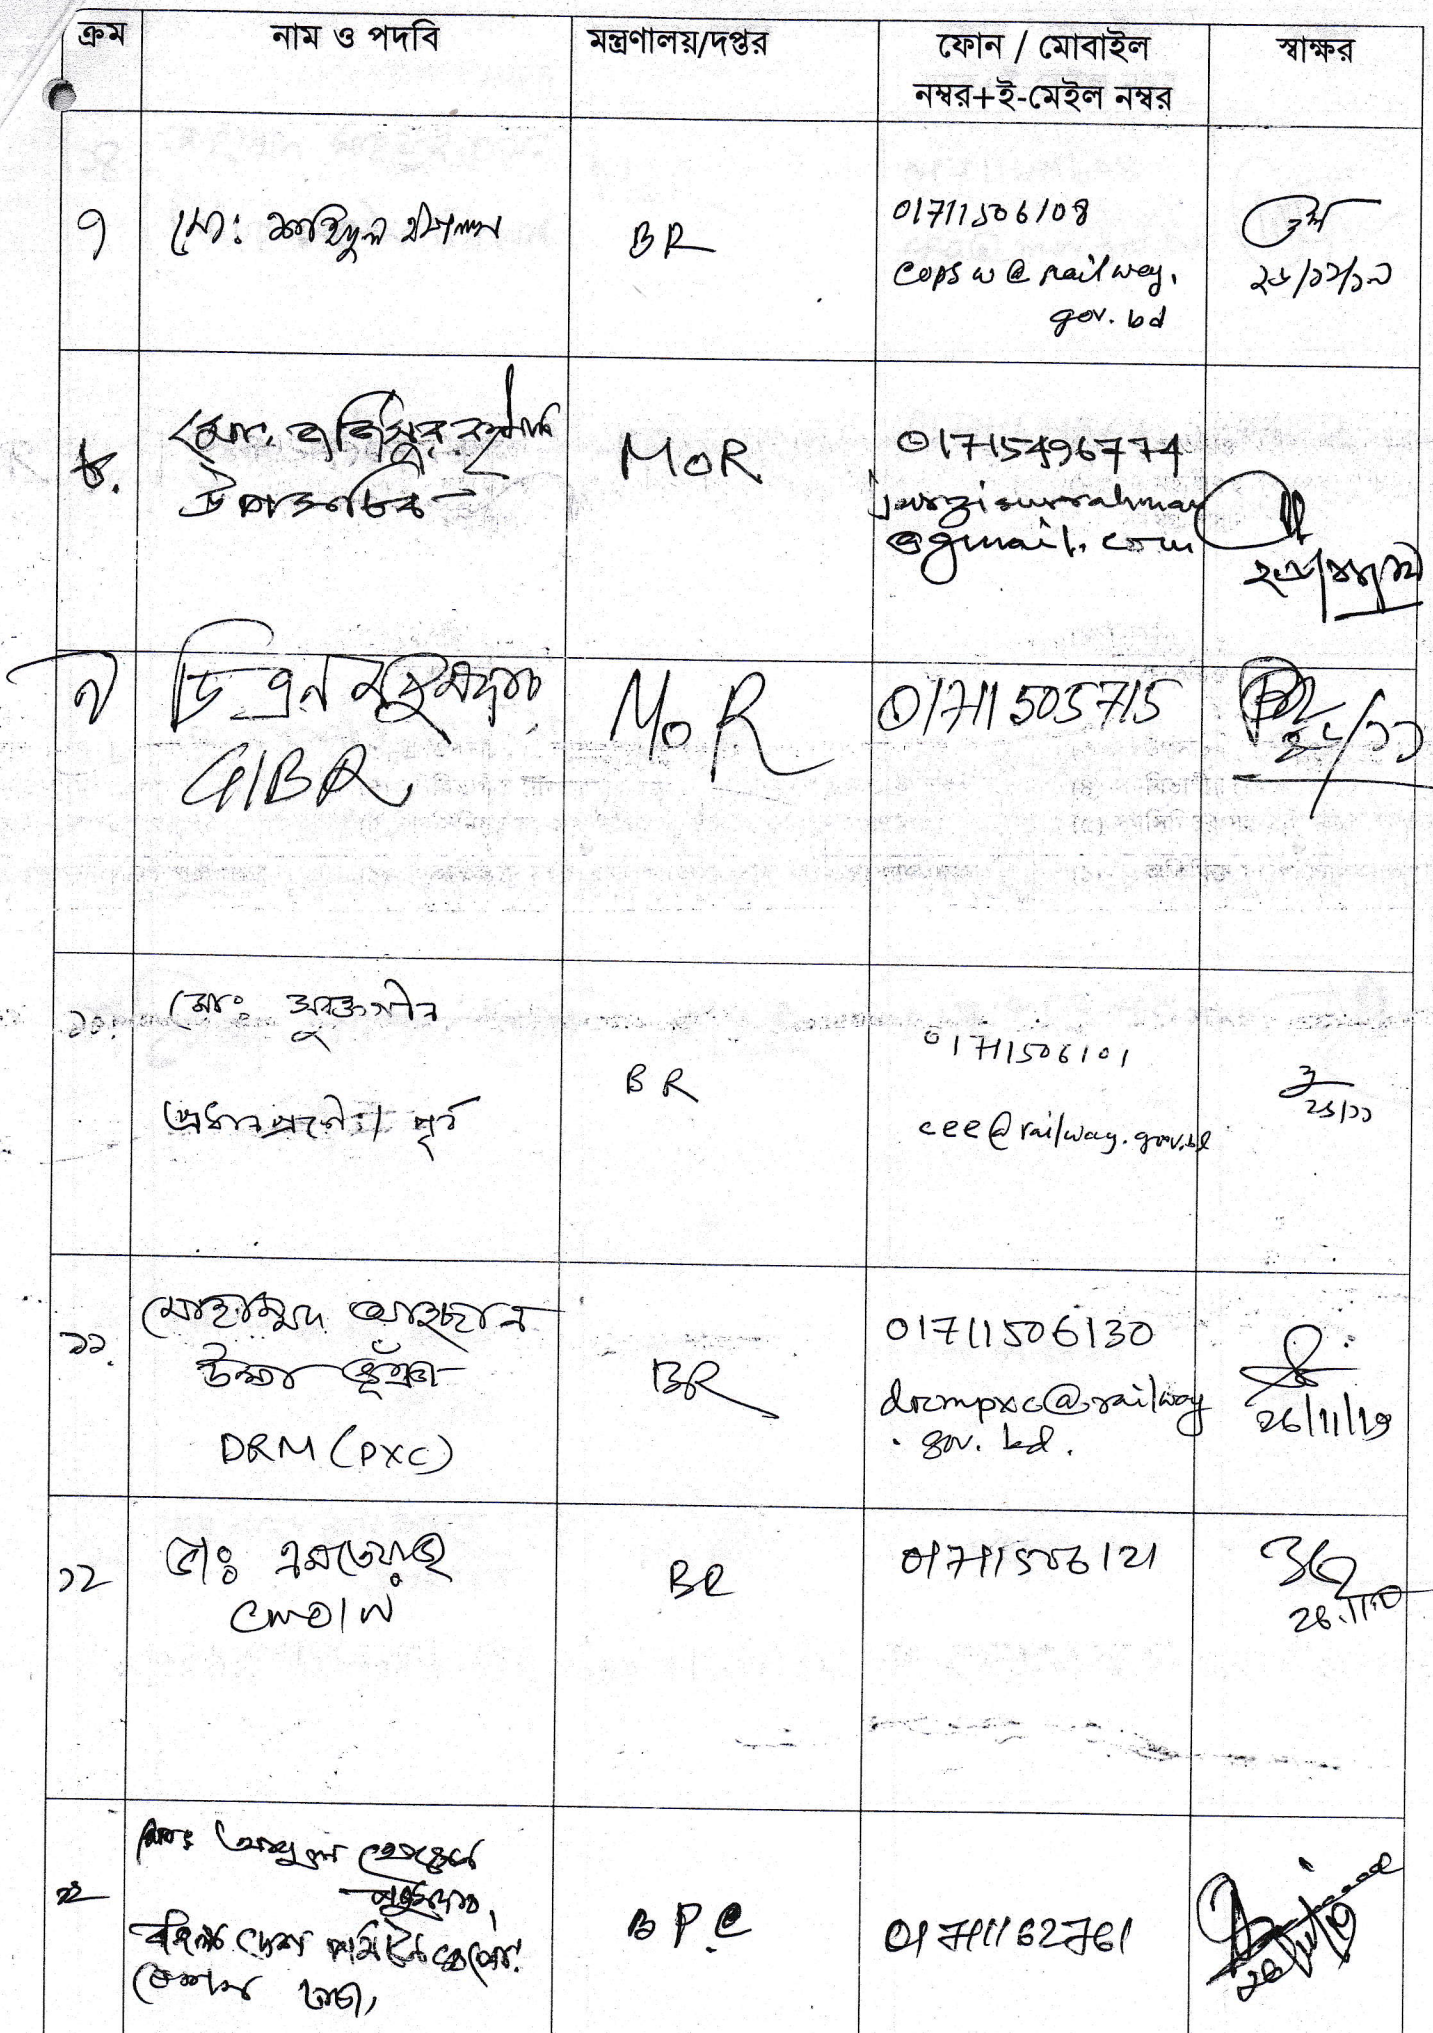 ক্রম
নাম ও পদবি
মন্ত্রণালয়/দপ্তর
ফোন / মোবাইল
নম্বর+ই-মেইল নম্বর
স্বাক্ষর
৭
মো: শহিদুল ইসলাম
BR
01711506108
cops w @ railway.
gov. bd
২৬/১১/১৯
৮.
মো. জর্জিসুর রহমান
উপসচিব
MoR
01715496774
jurzisurrahman
@gmail.com
৯
ডি এন মজুমদার
GIBR
MoR
01711505715
২৬/১১
১০.
মোঃ সুবক্তগীন
পূর্ব
BR
01711506101
cee@railway.gov.bd
২৬/১১
১১.
মোহাম্মদ আহছান
উল্যা ভূঁঞা
DRM (PXC)
BR
01711506130
drmpxc@railway
. gov. bd.
26/11/19
১২
ডাঃ
BR
01711506121
মোঃ আবুল
BPC
01711162761